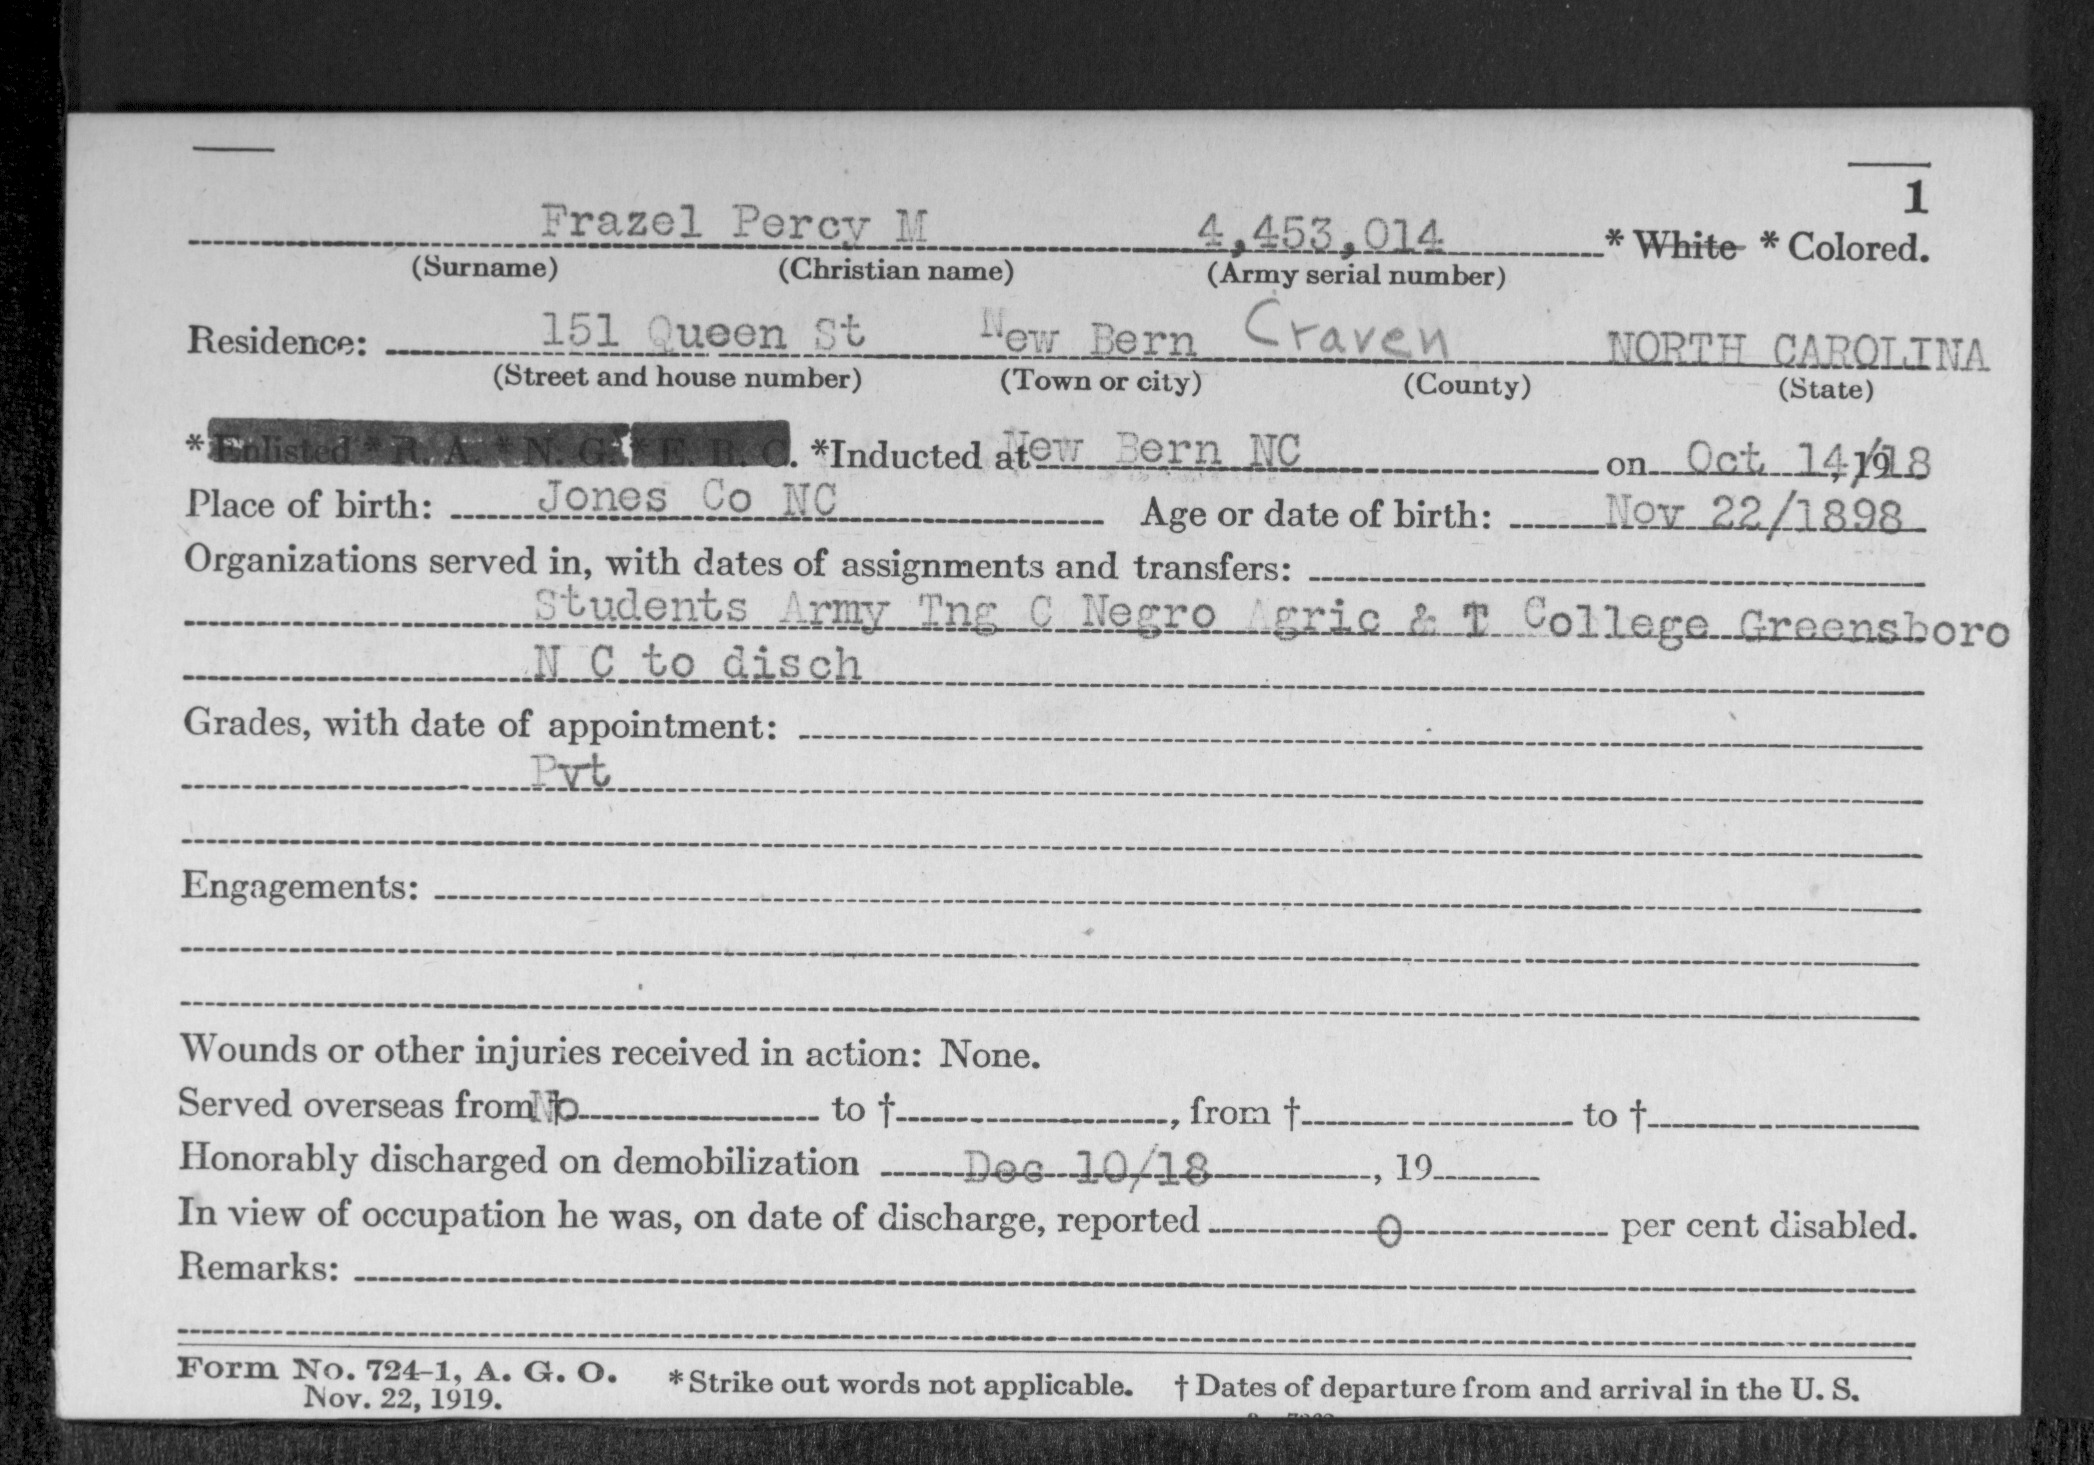 1
Frazel Percy M 4,453,014 * White * Colored.
(Surname) (Christian name) (Army serial number)
Residence: 151 Queen St New Bern Craven NORTH CAROLINA
(Street and house number) (Town or city) (County) (State)
*Enlisted * R. A. * N. G. * E. R. C. *Inducted at New Bern NC on Oct 14, 19/18
Place of birth: Jones Co NC Age or date of birth: Nov 22/1898
Organizations served in, with dates of assignments and transfers:
Students Army Tng C Negro Agric & T College Greensboro
N C to disch
Grades, with date of appointment:
Pvt
Engagements:
Wounds or other injuries received in action: None.
Served overseas from † No to †, from † to †
Honorably discharged on demobilization Dec 10/18, 19
In view of occupation he was, on date of discharge, reported 0 per cent disabled.
Remarks:
Form No. 724-1, A. G. O. * Strike out words not applicable. † Dates of departure from and arrival in the U. S.
Nov. 22, 1919.